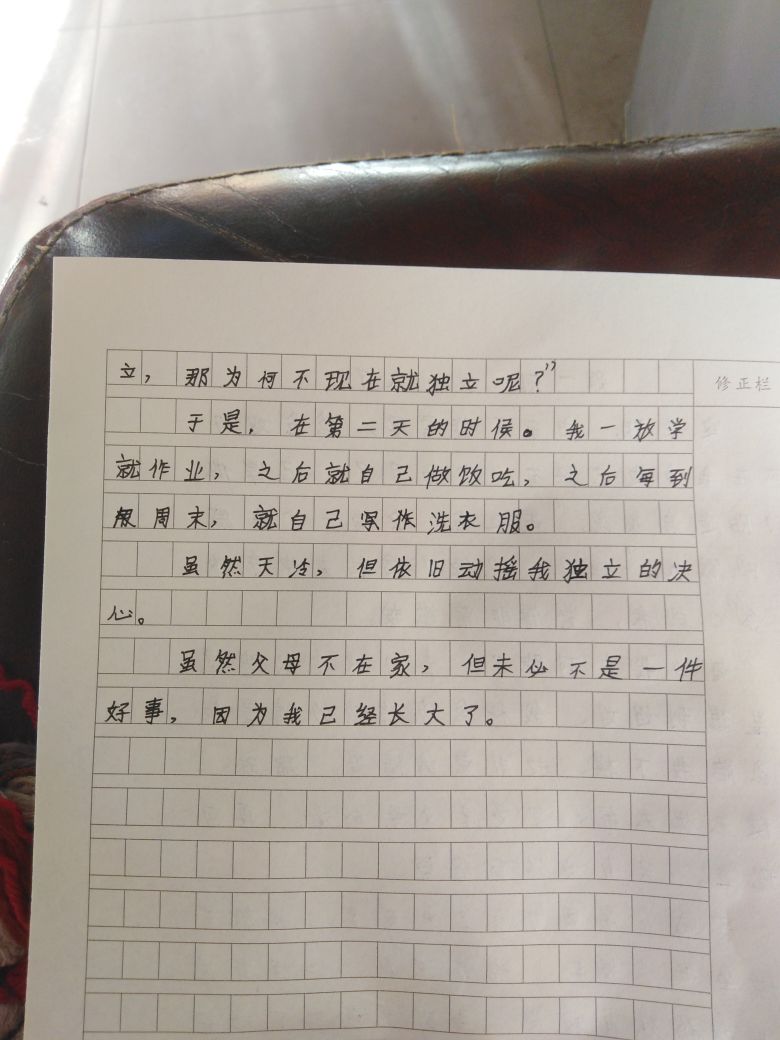 立，那为何不现在就独立呢？”
修正栏
于是，在第二天的时候。我一放学
就作业，之后就自己做饭吃，之后每到
周末，就自己写作洗衣服。
虽然天冷，但依旧动摇我独立的决
心。
虽然父母不在家，但未必不是一件
好事，因为我已经长大了。